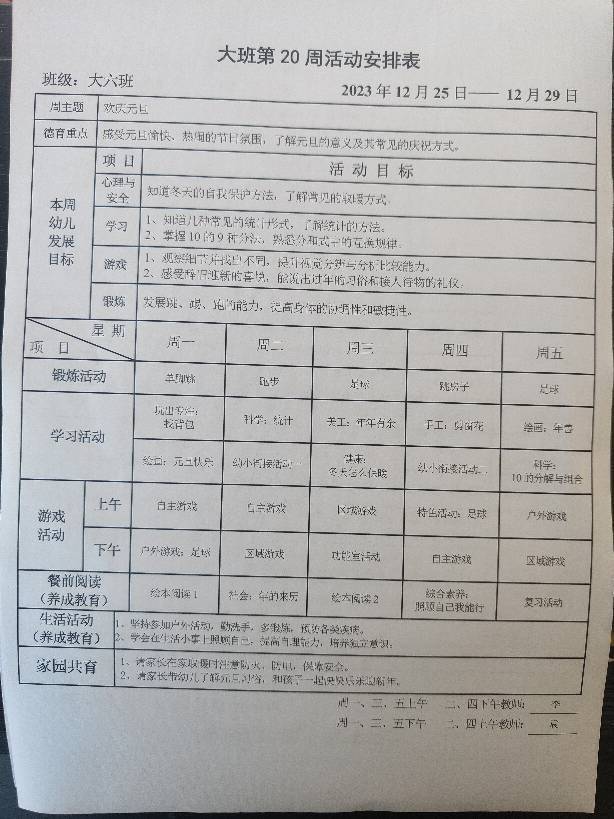 大班第 20 周活动安排表
班级：大六班
2023 年 12 月 25 日—— 12 月 29 日
周主题 欢庆元旦
德育重点 感受元旦愉快、热闹的节日氛围，了解元旦的意义及其常见的庆祝方式。
本周幼儿发展目标
项 目 活 动 目 标
心理与安全 知道冬天的自我保护方法，了解常见的取暖方式。
学习 1、知道几种常见的统计形式，了解统计的方法。
2、掌握 10 的 9 种分法，熟悉分和式中的互换规律。
游戏 1、观察细节并找出不同，提升视觉分辨与分析比较能力。
2、感受辞旧迎新的喜悦，能说出过年的习俗和接人待物的礼仪。
锻炼 发展跳、踢、跑的能力，提高身体的协调性和敏捷性。
星 期
项 目 周一 周二 周三 周四 周五
锻炼活动 单脚跳 跑步 足球 跳房子 足球
学习活动
玩出专注：找背包 科学：统计 美工：年年有余 手工：剪窗花 绘画：年兽
绘画：元旦快乐 幼小衔接活动 健康：冬天怎么保暖 幼小衔接活动 科学：10 的分解与组合
游戏活动
上午 自主游戏 自主游戏 区域游戏 特色活动：足球 户外游戏
下午 户外游戏：足球 区域游戏 功能室活动 自主游戏 区域游戏
餐前阅读（养成教育） 绘本阅读 1 社会：年的来历 绘本阅读 2 综合素养：照顾自己我能行 复习活动
生活活动（养成教育） 1、坚持参加户外活动，勤洗手，多锻炼，预防各类疾病。
2、学会在生活小事上照顾自己，提高自理能力，培养独立意识。
家园共育 1、请家长在家取暖时注意防火、防电，保障安全。
2、请家长带幼儿了解元旦习俗，和孩子一起快快乐乐迎新年。
周一、三、五上午 二、四下午教师： 李
周一、三、五下午 二、四上午教师：